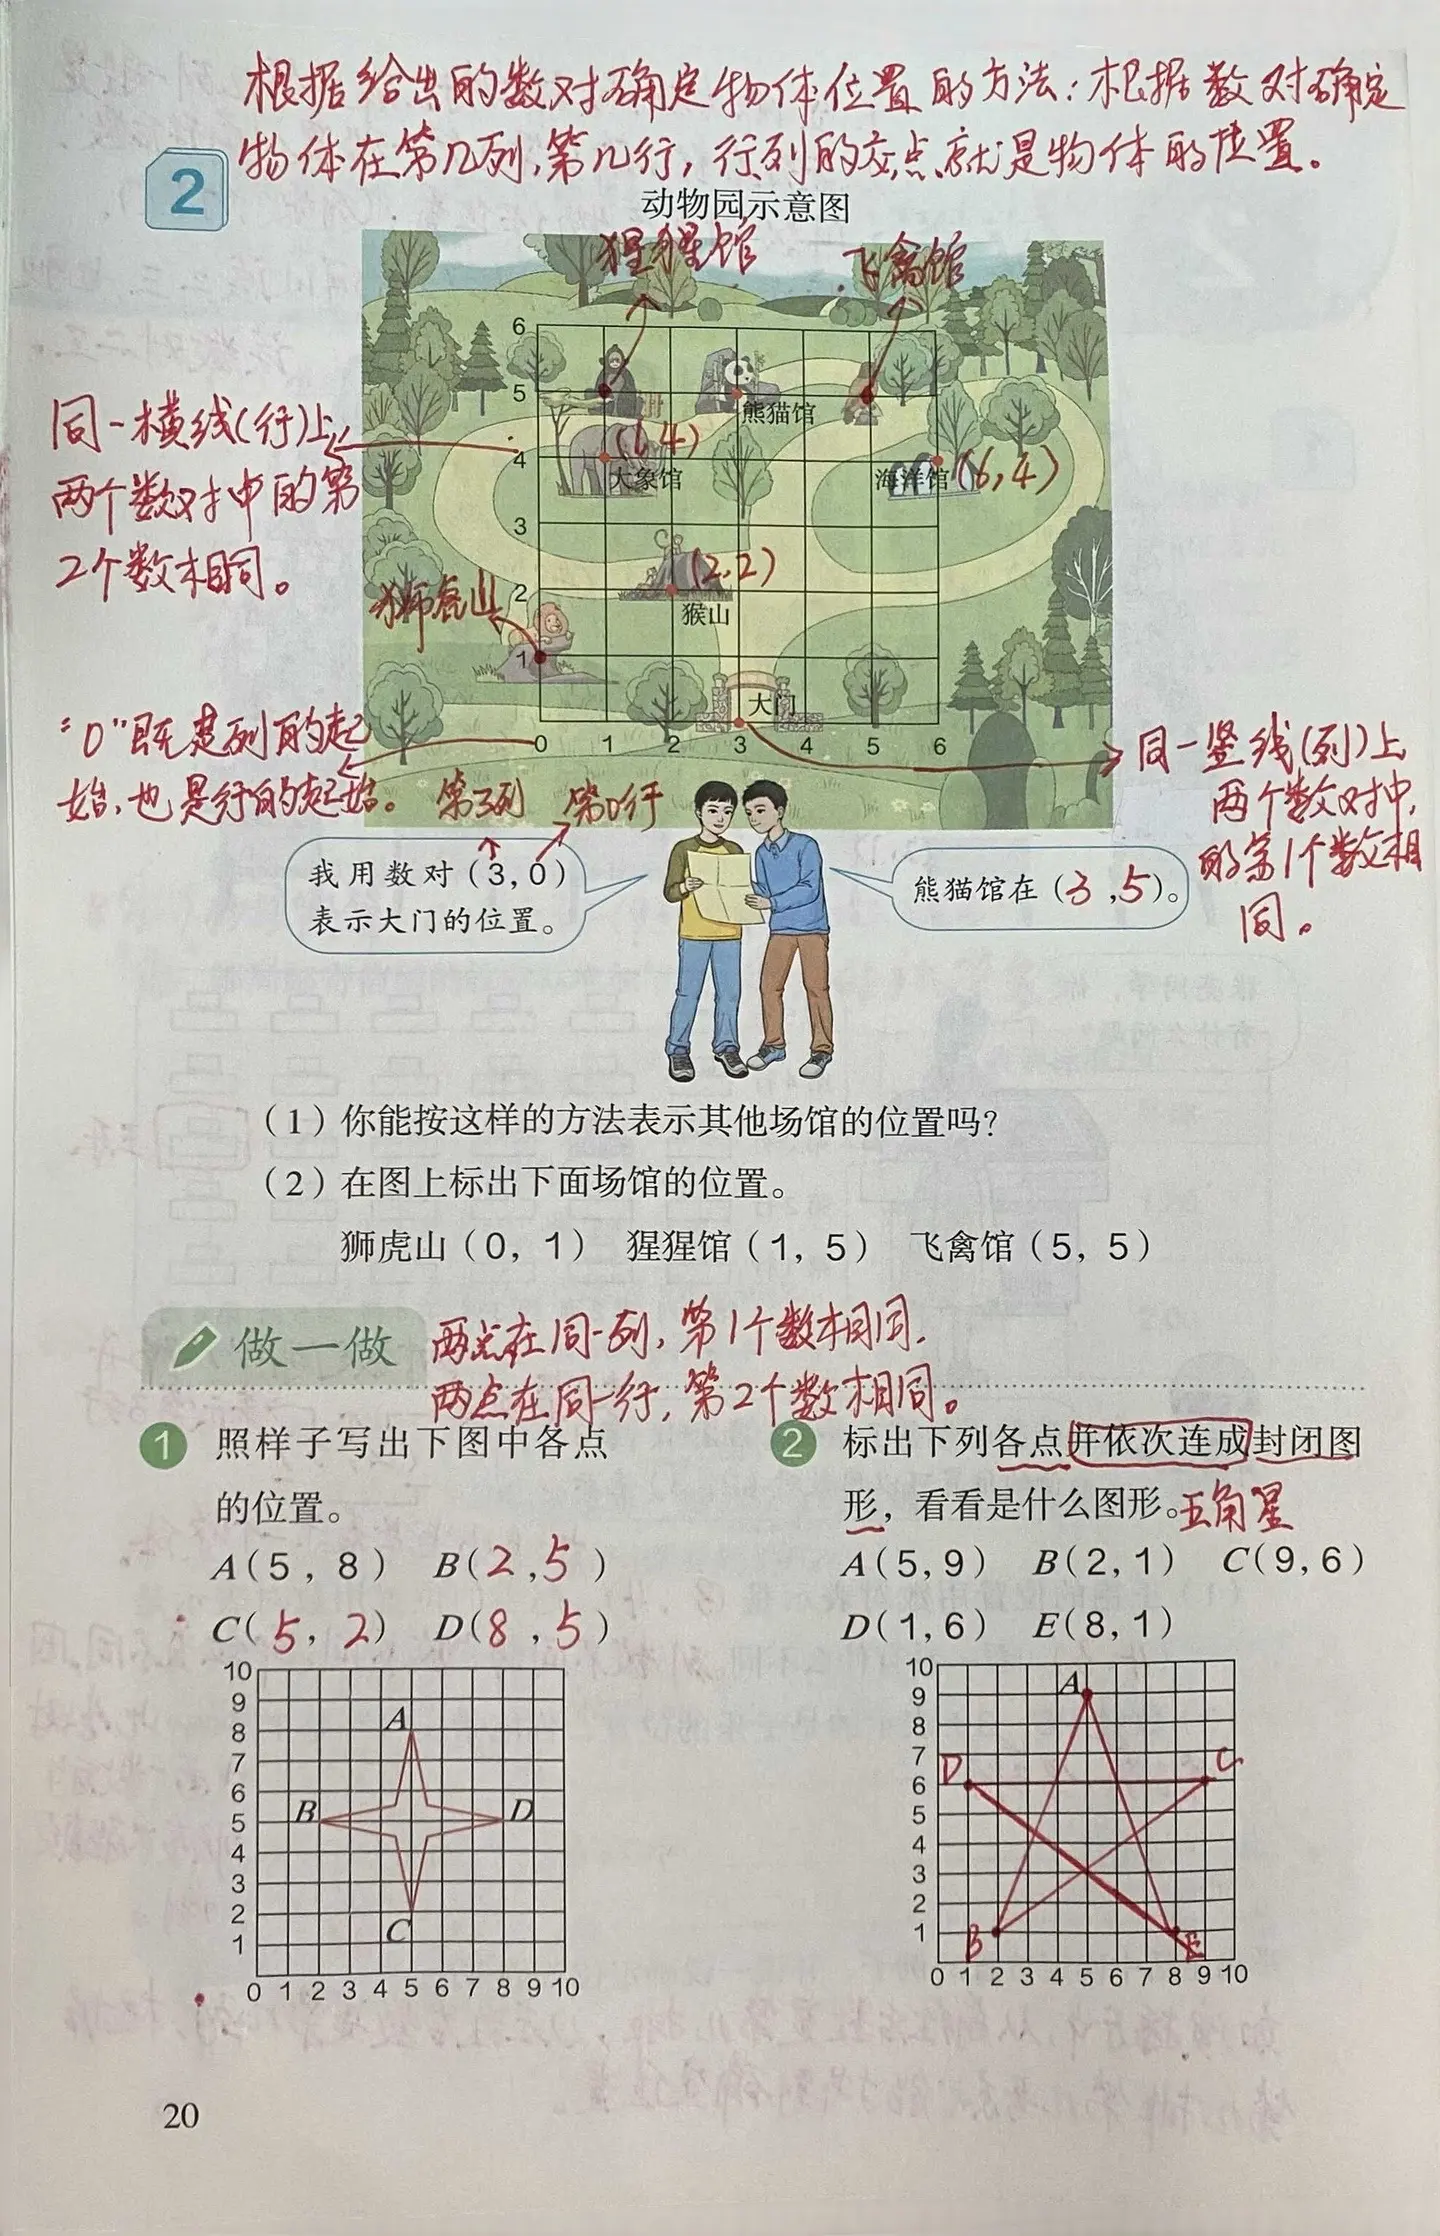 根据给出的数对确定物体位置的方法：根据数对确定
物体在第几列，第几行，行列的交点就是物体的位置。
2
动物园示意图
猩猩馆
飞禽馆
6
5
熊猫馆
同一横线(行)上
两个数对中的第
2个数相同。
4
(1,4)
大象馆
海洋馆
(6,4)
3
狮虎山
2
(2,2)
猴山
1
大门
0 1 2 3 4 5 6
"0"既是列的起
始，也是行的起始。
第3列 第0行
同一竖线(列)上
两个数对中,
的第1个数相
同。
我用数对（3,0）
表示大门的位置。
熊猫馆在（3,5）。
（1）你能按这样的方法表示其他场馆的位置吗？
（2）在图上标出下面场馆的位置。
狮虎山（0，1） 猩猩馆（1，5） 飞禽馆（5，5）
做一做
两点在同一列，第1个数相同，
两点在同一行，第2个数相同。
1 照样子写出下图中各点
的位置。
A(5，8) B(2,5)
C(5，2) D(8,5)
10
9
8
7
6
5
4
3
2
1
A
B
D
C
0 1 2 3 4 5 6 7 8 9 10
2 标出下列各点并依次连成封闭图
形，看看是什么图形。五角星
A(5,9) B(2,1) C(9,6)
D(1,6) E(8,1)
10
9
8
7
6
5
4
3
2
1
A
D
C
B
E
0 1 2 3 4 5 6 7 8 9 10
20